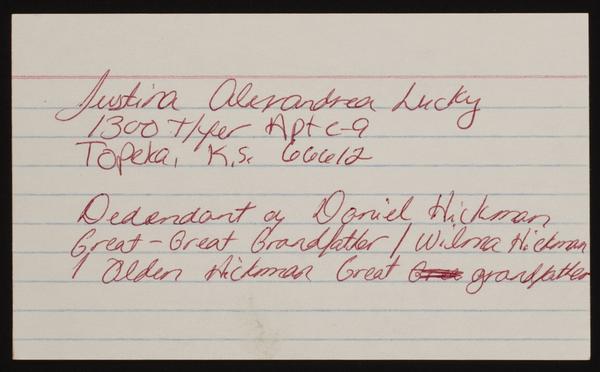 Justina Alexandrea Lucky
1300 Tyler Apt C-9
Topeka, K.S. 66612
Dedendant of Daniel Hickman
Great-Great Grandfather / Wilma Hickman
/ Olden Hickman Great grandfather